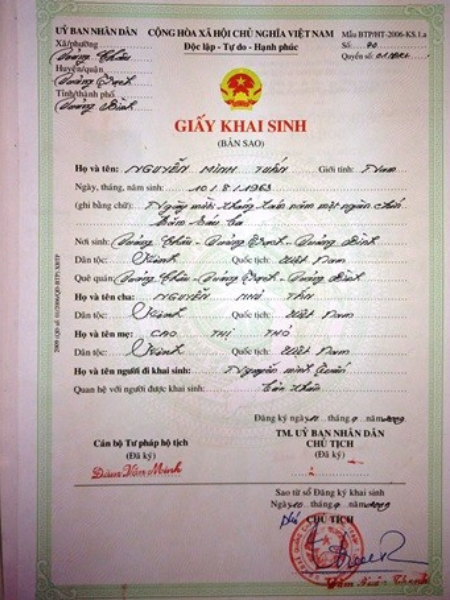 UỶ BAN NHÂN DÂN
CỘNG HÒA XÃ HỘI CHỦ NGHĨA VIỆT NAM
Mẫu BTP/HT-2006-KS.1.a
Xã/phường
Độc lập - Tự do - Hạnh phúc
Số: 70
Quảng Châu
Quyển số:
Huyện/quận
Quảng Trạch
Tỉnh/thành phố
Quảng Bình
GIẤY KHAI SINH
(BẢN SAO)
Họ và tên: NGUYỄN MINH TUẤN Giới tính: Nam
Ngày, tháng, năm sinh: 10/8/1963
(ghi bằng chữ): Ngày mười tháng tám năm một ngàn chín
trăm sáu ba
Nơi sinh: Quảng Châu - Quảng Trạch - Quảng Bình
Dân tộc: Kinh Quốc tịch: Việt Nam
Quê quán: Quảng Châu - Quảng Trạch - Quảng Bình
Họ và tên cha: NGUYỄN NHƯ TÂN
Dân tộc: Kinh Quốc tịch: Việt Nam
Họ và tên mẹ: CAO THỊ THỎ
Dân tộc: Kinh Quốc tịch: Việt Nam
Họ và tên người đi khai sinh: Nguyễn minh Tuấn
Quan hệ với người được khai sinh: Bản thân
Đăng ký ngày tháng 9 năm 2009
Cán bộ Tư pháp hộ tịch
(Đã ký)
Đàm Văn Minh
TM. UỶ BAN NHÂN DÂN
CHỦ TỊCH
(Đã ký)
Sao từ sổ Đăng ký khai sinh
Ngày 10 tháng 9 năm 2009
Phó CHỦ TỊCH
Đàm Xuân Thanh